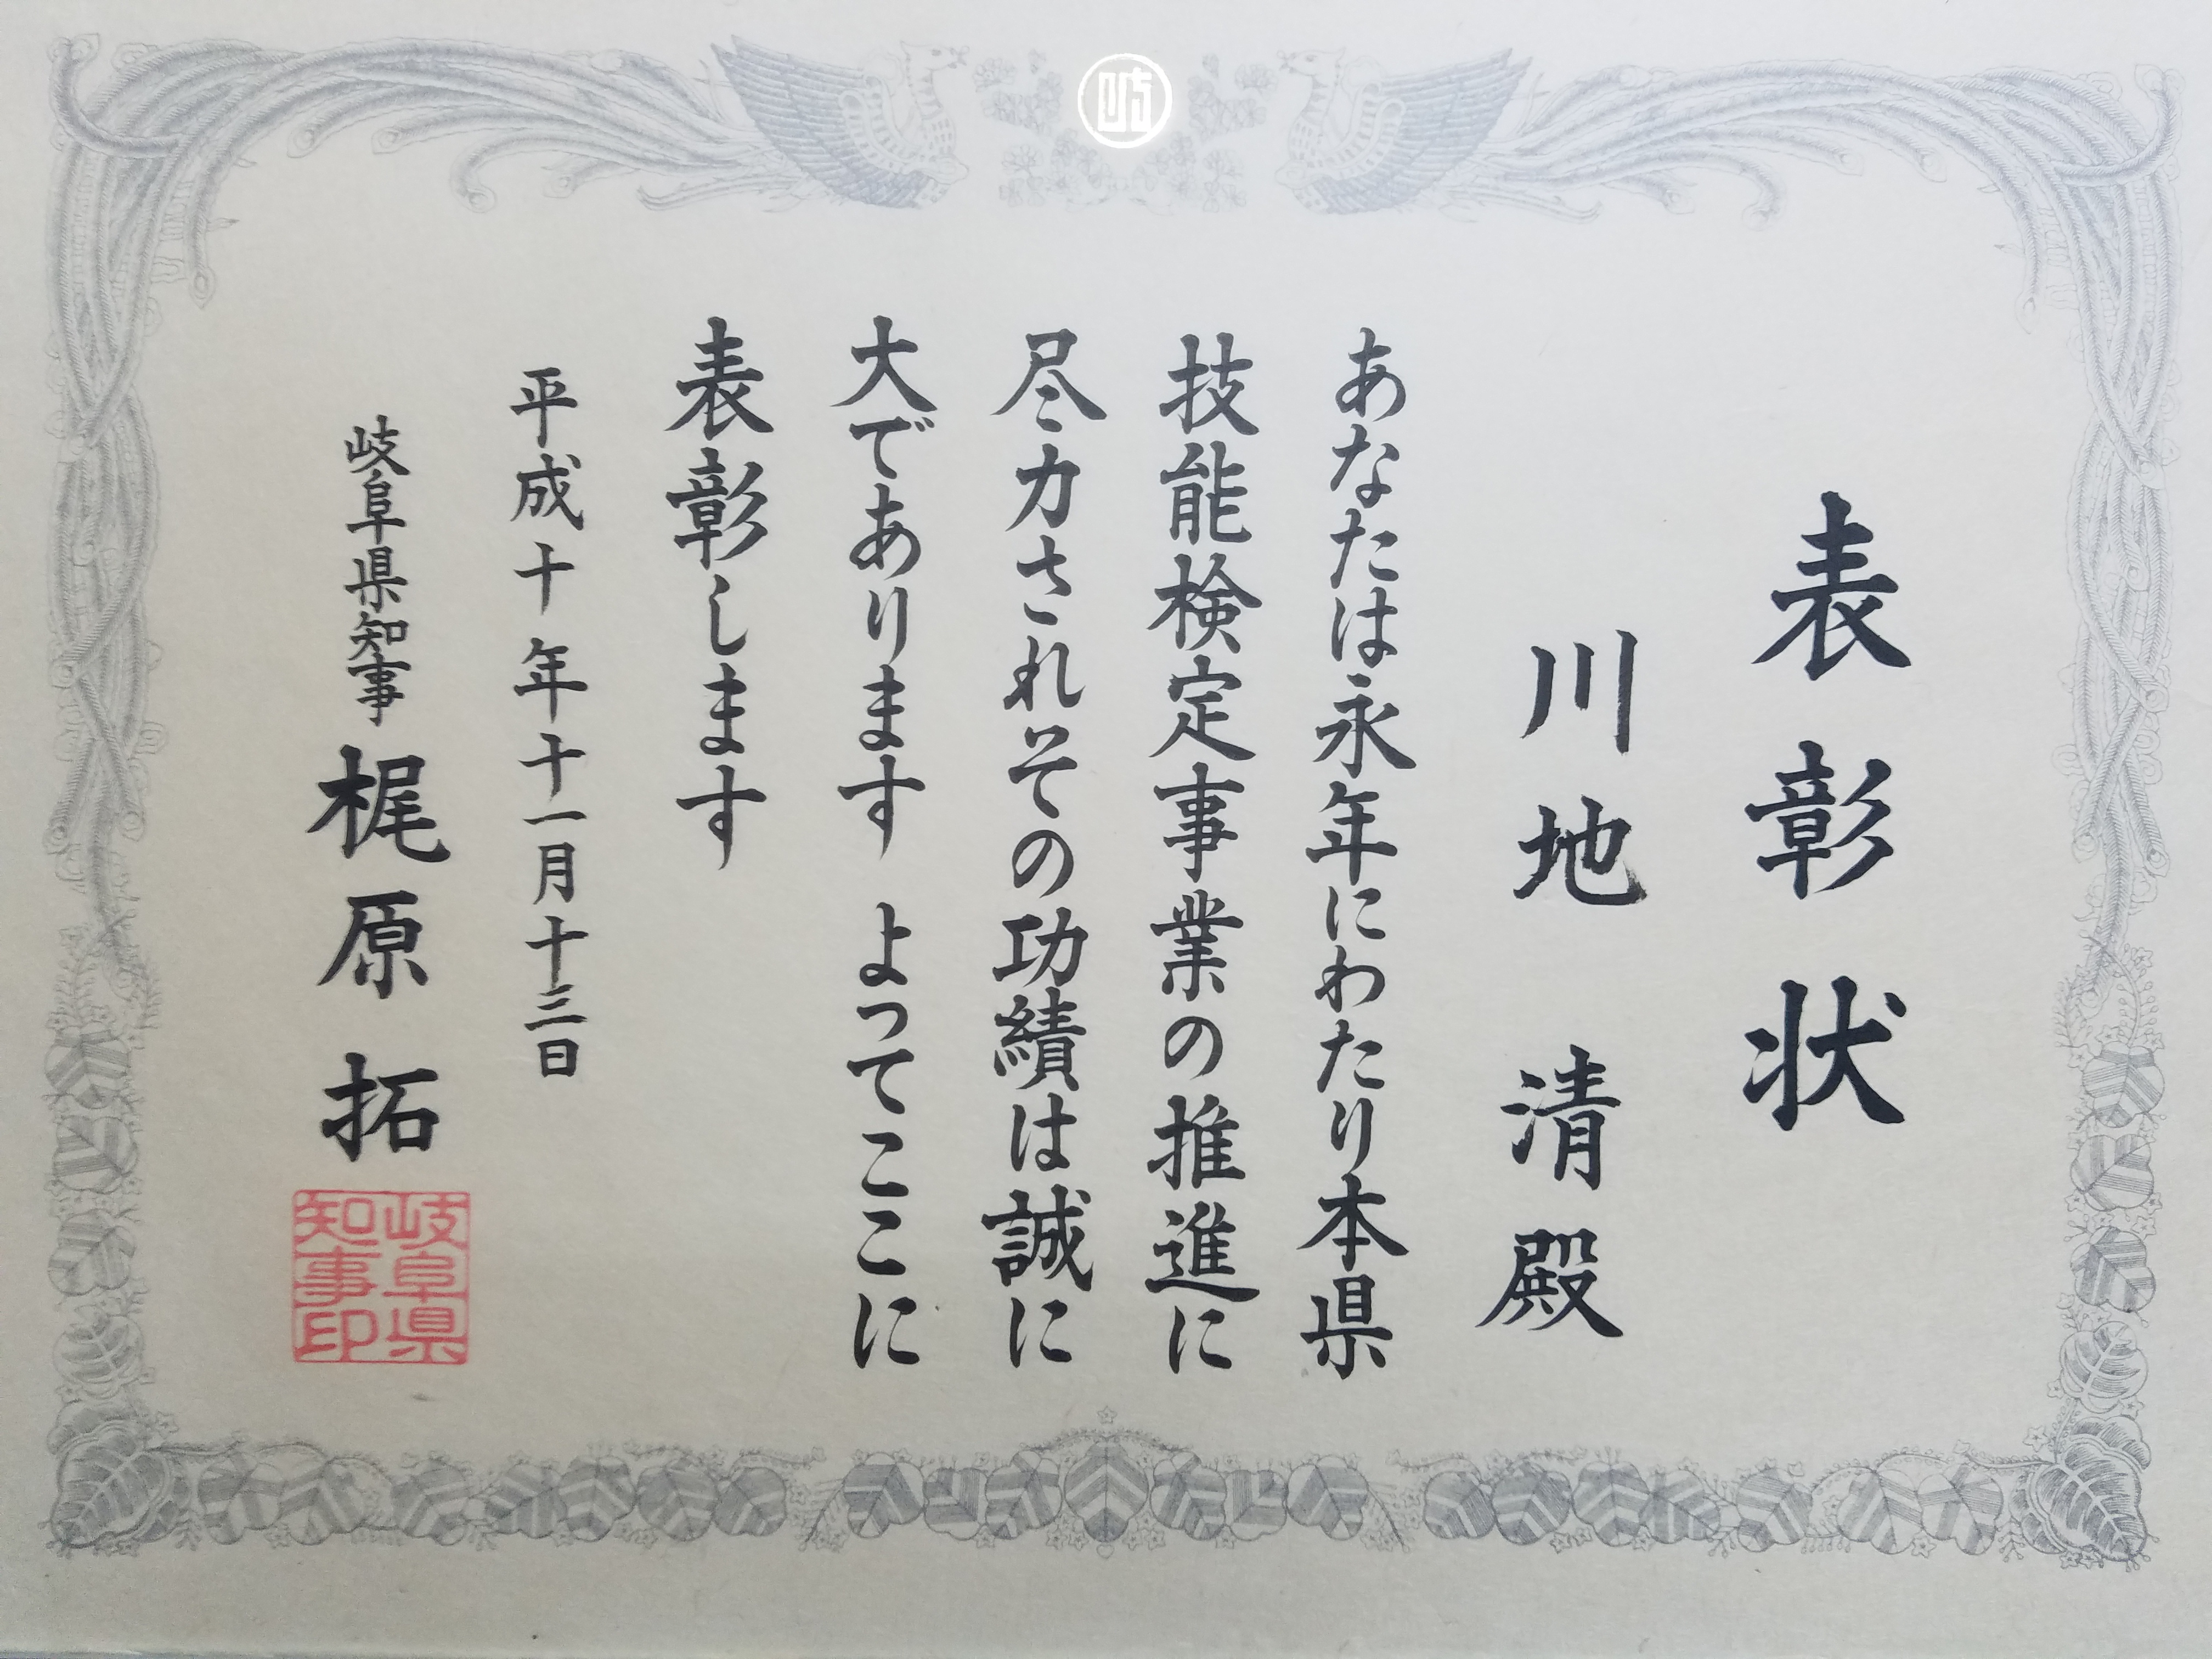 岐
表彰状
川地 清 殿
あなたは永年にわたり本県
技能検定事業の推進に
尽力されその功績は誠に
大であります よってここに
表彰します
平成十年十一月十三日
岐阜県知事 梶原 拓
岐阜県
知事印